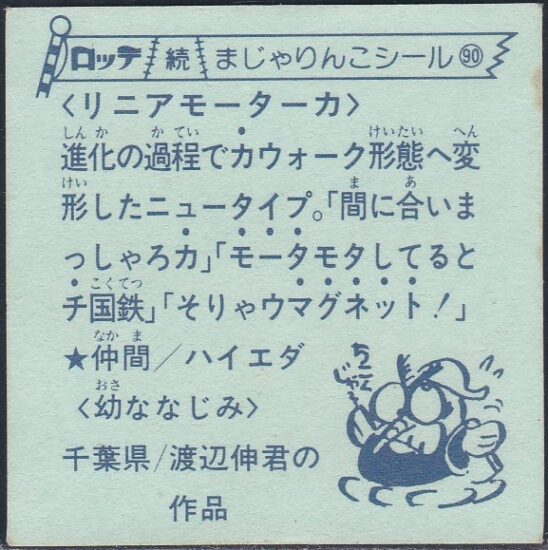 ロッテ 続 まじゃりんこシール 90
〈リニアモーターカ〉
進化の過程でカウォーク形態へ変
形したニュータイプ。「間に合いま
っしゃろカ」「モータモタしてると
チ国鉄」「そりゃウマグネット！」
★仲間／ハイエダ
〈幼ななじみ〉
千葉県/渡辺伸君の
作品